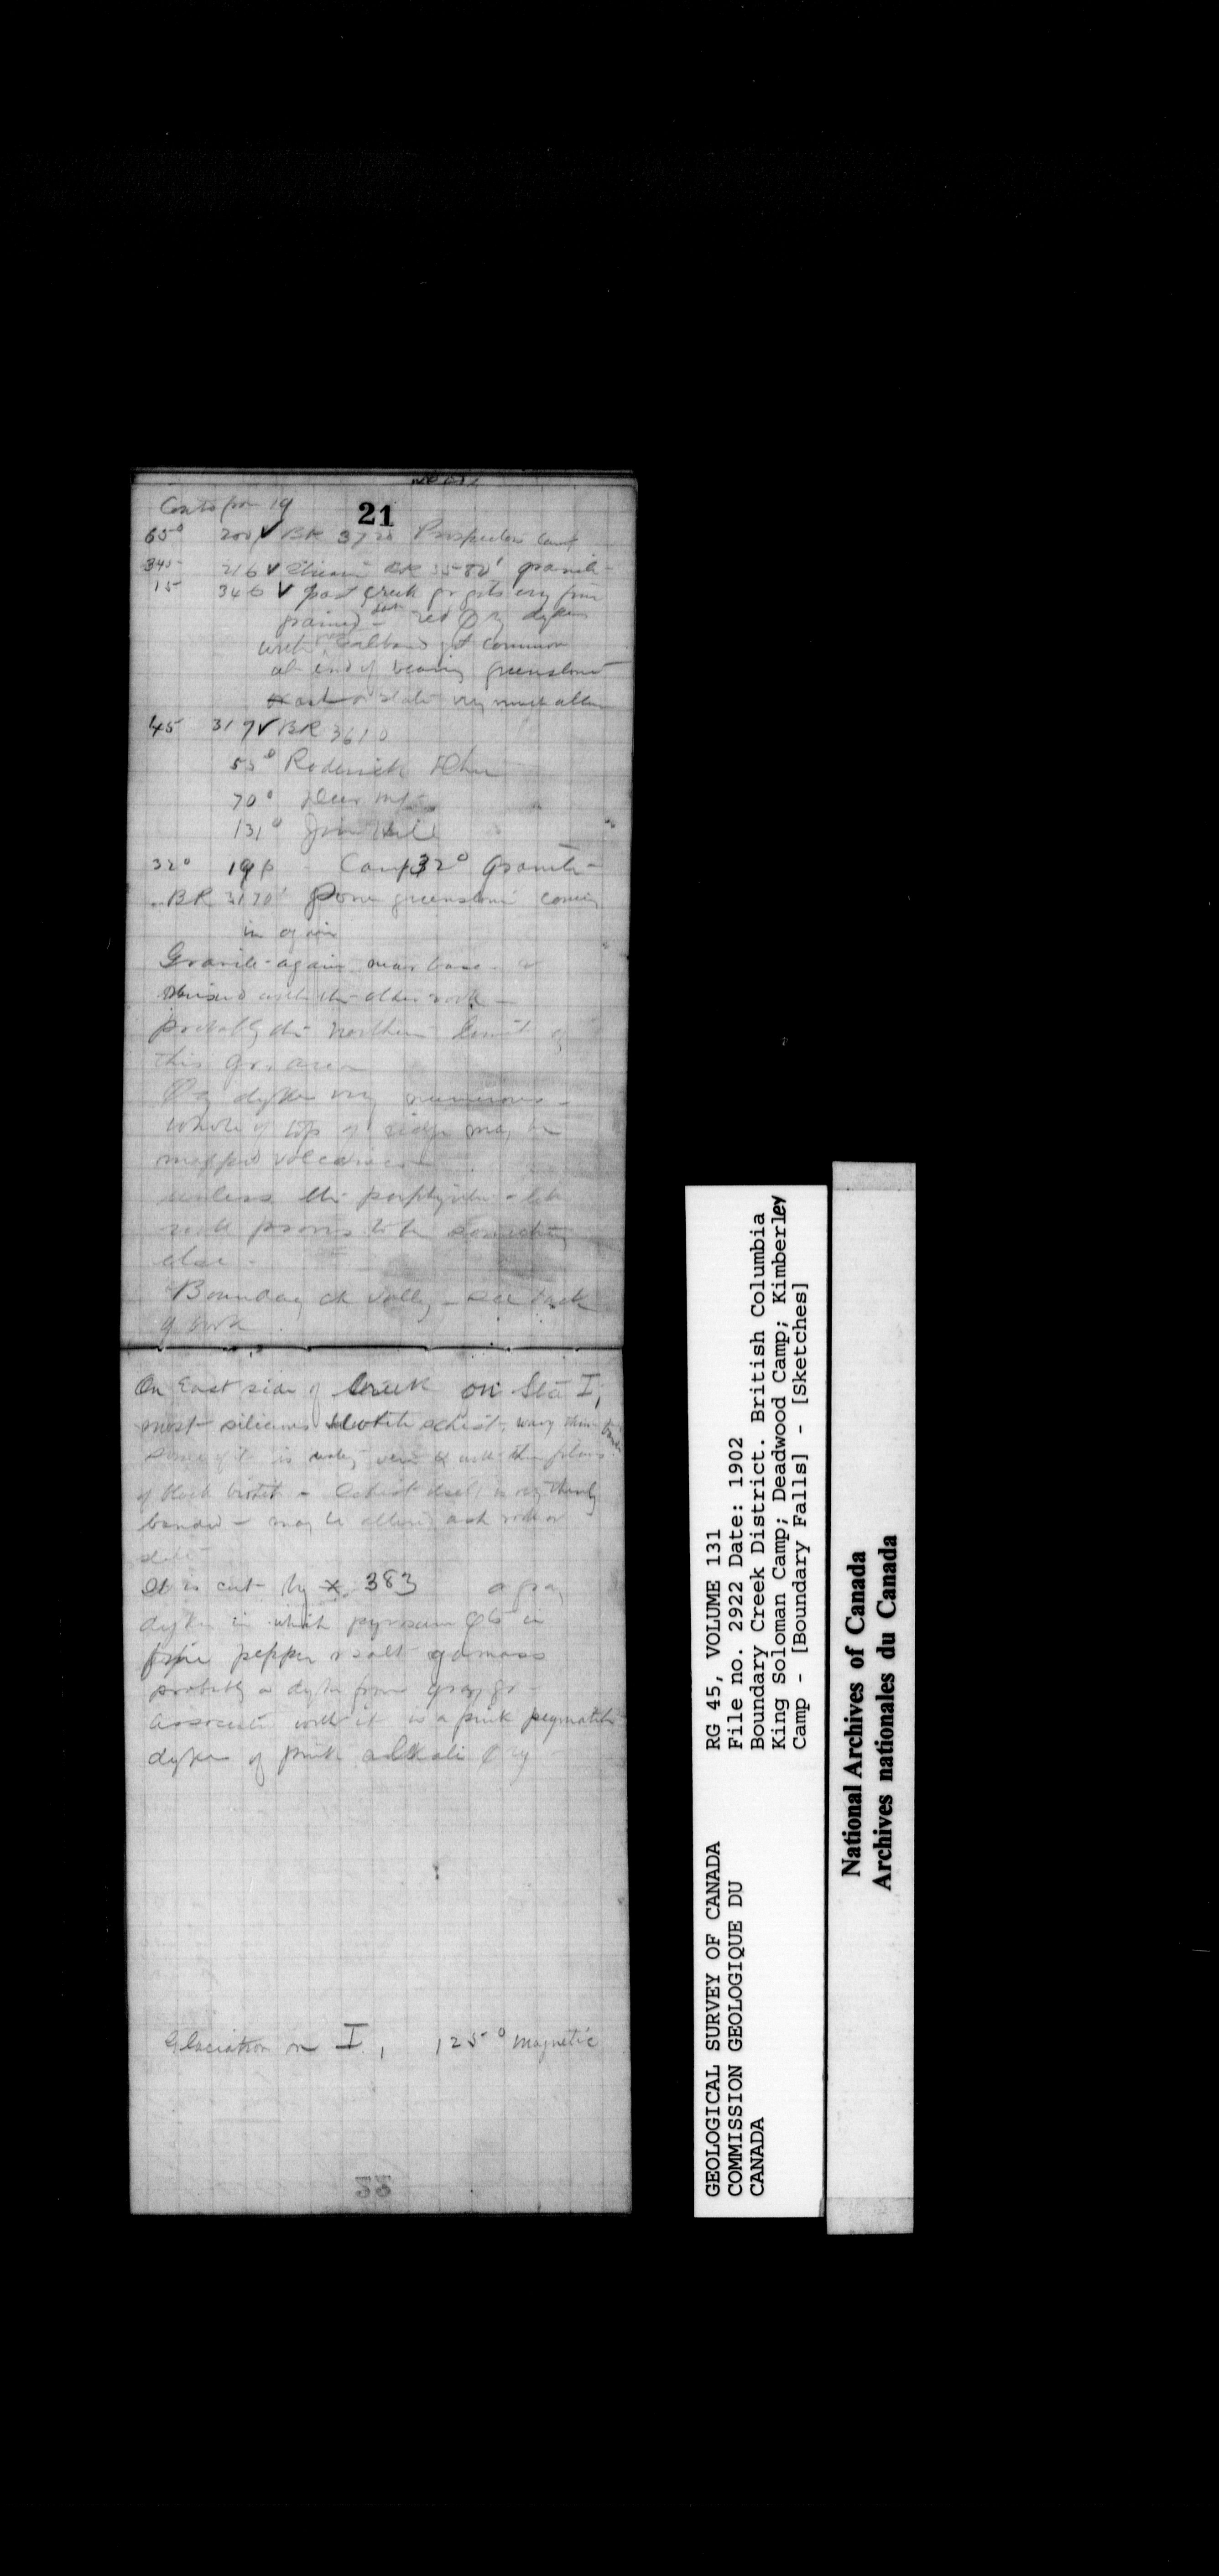 Contd from 19
21
65° 200 ✓ BR 3720 Prospectors Camp
345 216 ✓ Stream BR 3580' granite
15 346 ✓ past creek gr gets very fine
grained red dykes
with common
at end of bearing greenstone
or slate very much alt
45 317 ✓ BR 3610
55° Roderick Dhu
70° Deer Mt
131° Jim Hill
32° 198 - Camp 32° Granite -
BR 3170' Some greenstone coming
in again
Granite again near base
mixed with the older rock -
probably the northern limit of
this gr. area
dykes very numerous -
whole of top of ridge may be
mapped volcanic
unless the porphyrite - like
rock proves to be something
else -
Boundary Ck Valley - see back
of book
On East side of Creek on Sta I,
most siliceous biotite schist, wavy thin bands
Some of it is with thin films
of black biotite - Schist itself is very thinly
banded - may be altered ash rock or
slate
It is cut by x 383 a gray
dyke in which pyroxene in
fine pepper & salt gdmass
probably a dyke from gray gr -
Associated with it is a pink pegmatite
dykes of pink alkali
Glaciation on I, 125° magnetic
22
GEOLOGICAL SURVEY OF CANADA
COMMISSION GEOLOGIQUE DU
CANADA
RG 45, VOLUME 131
File no. 2922 Date: 1902
Boundary Creek District. British Columbia
King Soloman Camp; Deadwood Camp; Kimberley
Camp - [Boundary Falls] - [Sketches]
National Archives of Canada
Archives nationales du Canada